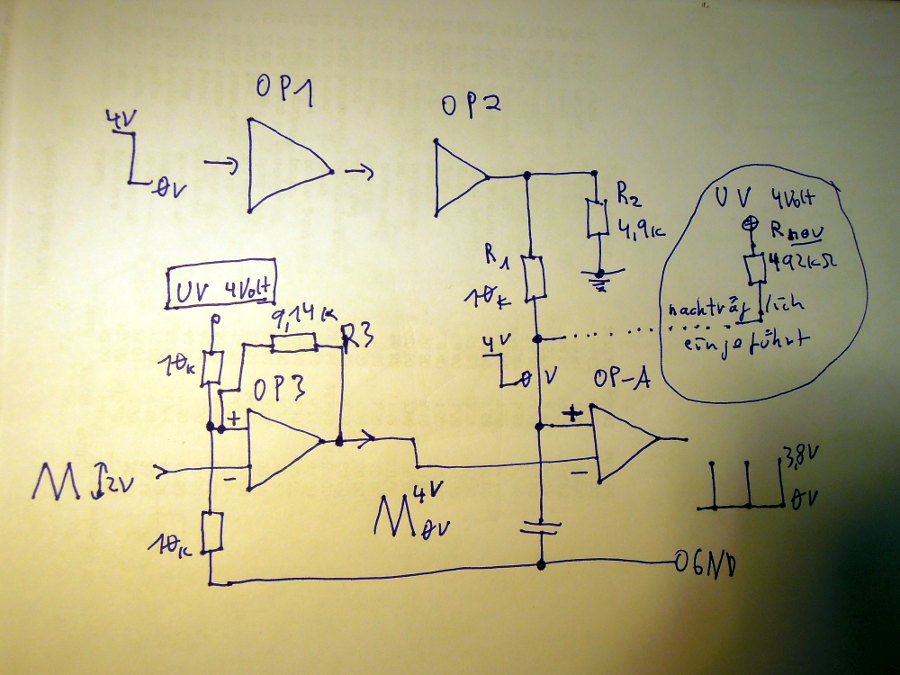 OP1
OP2
4V
0V
R2
4,9K
R1
10K
UV 4Volt
Rneu
492KΩ
nachträglich
eingeführt
UV 4Volt
9,14K
R3
10K
OP3
4V
0 V
OP-A
+
-
+
-
2V
4V
0V
3,8V
0V
10K
OGND